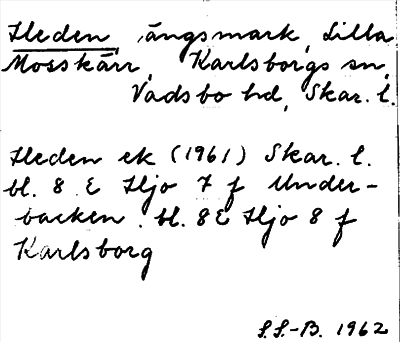 Heden, ängsmark, Lilla
Mosskärr, Karlsborgs sn,
Vadsbo hd, Skar. l.
Heden ek (1961) Skar. l.
bl. 8 E Hjo 7 f Under-
backen. bl. 8E Hjo 8 f
Karlsborg
S.S.-B. 1962